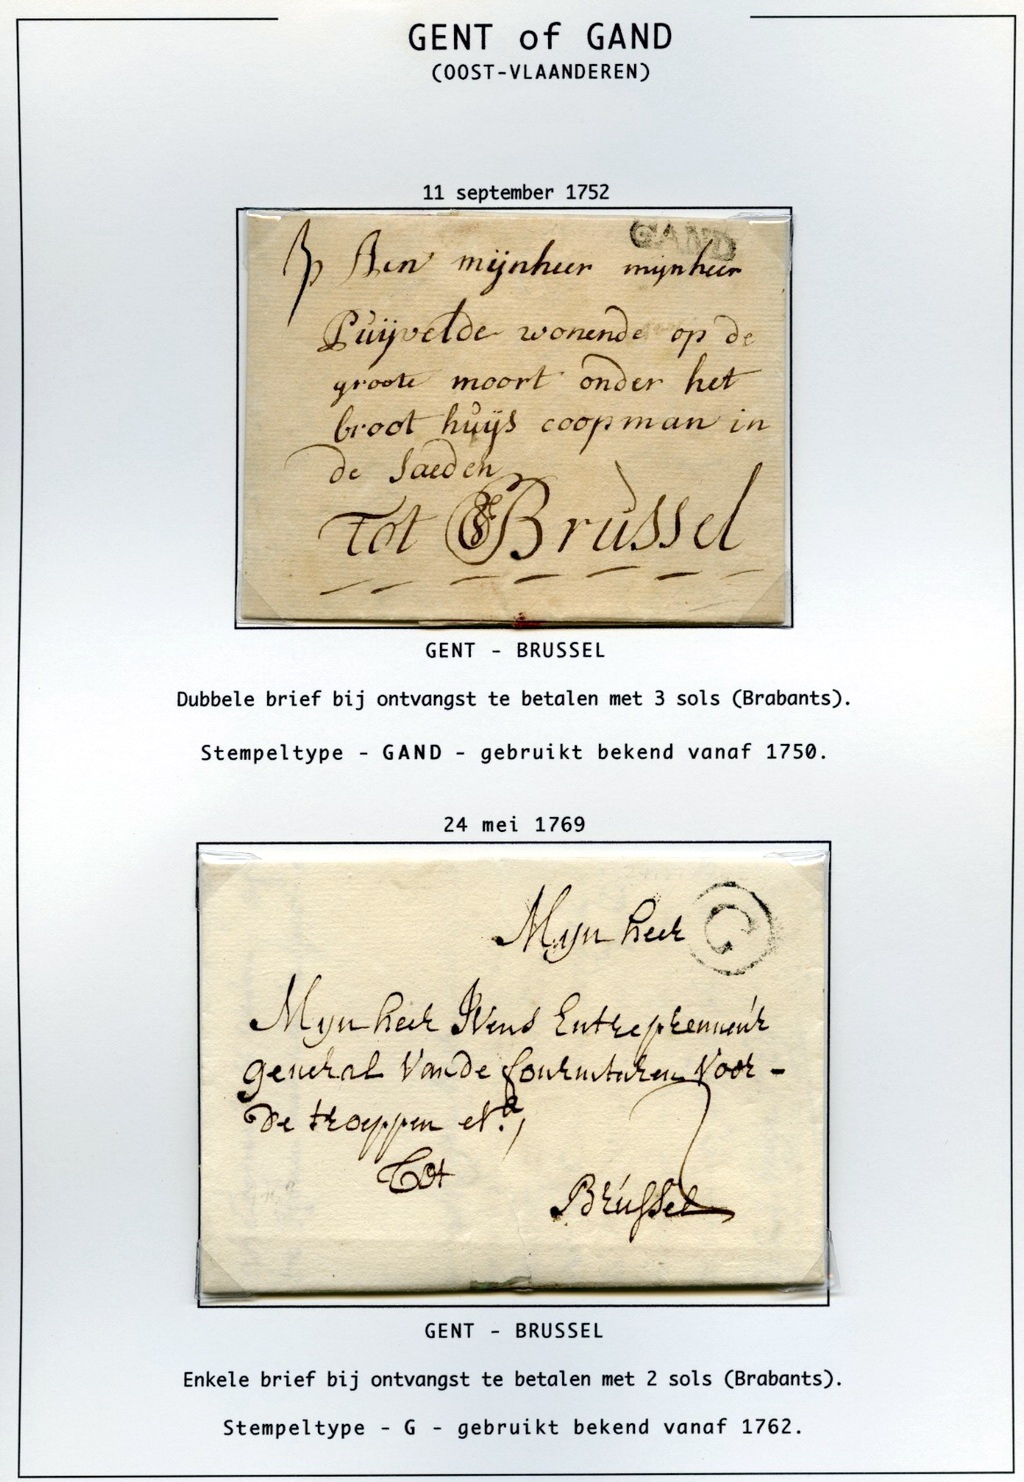 GENT of GAND
(OOST-VLAANDEREN)
11 september 1752
GAND
Aen mijnheer mijnheer
Puijvelde wonende op de
groote moort onder het
broot huijs coopman in
de saeden
Tot Brussel
GENT - BRUSSEL
Dubbele brief bij ontvangst te betalen met 3 sols (Brabants).
Stempeltype - GAND - gebruikt bekend vanaf 1750.
24 mei 1769
Mijn heer
G
Mijn heer Ivens Entreprenneur
general Vande fournituren Voor -
De troeppen etc.a,
Tot
Brussel
GENT - BRUSSEL
Enkele brief bij ontvangst te betalen met 2 sols (Brabants).
Stempeltype - G - gebruikt bekend vanaf 1762.